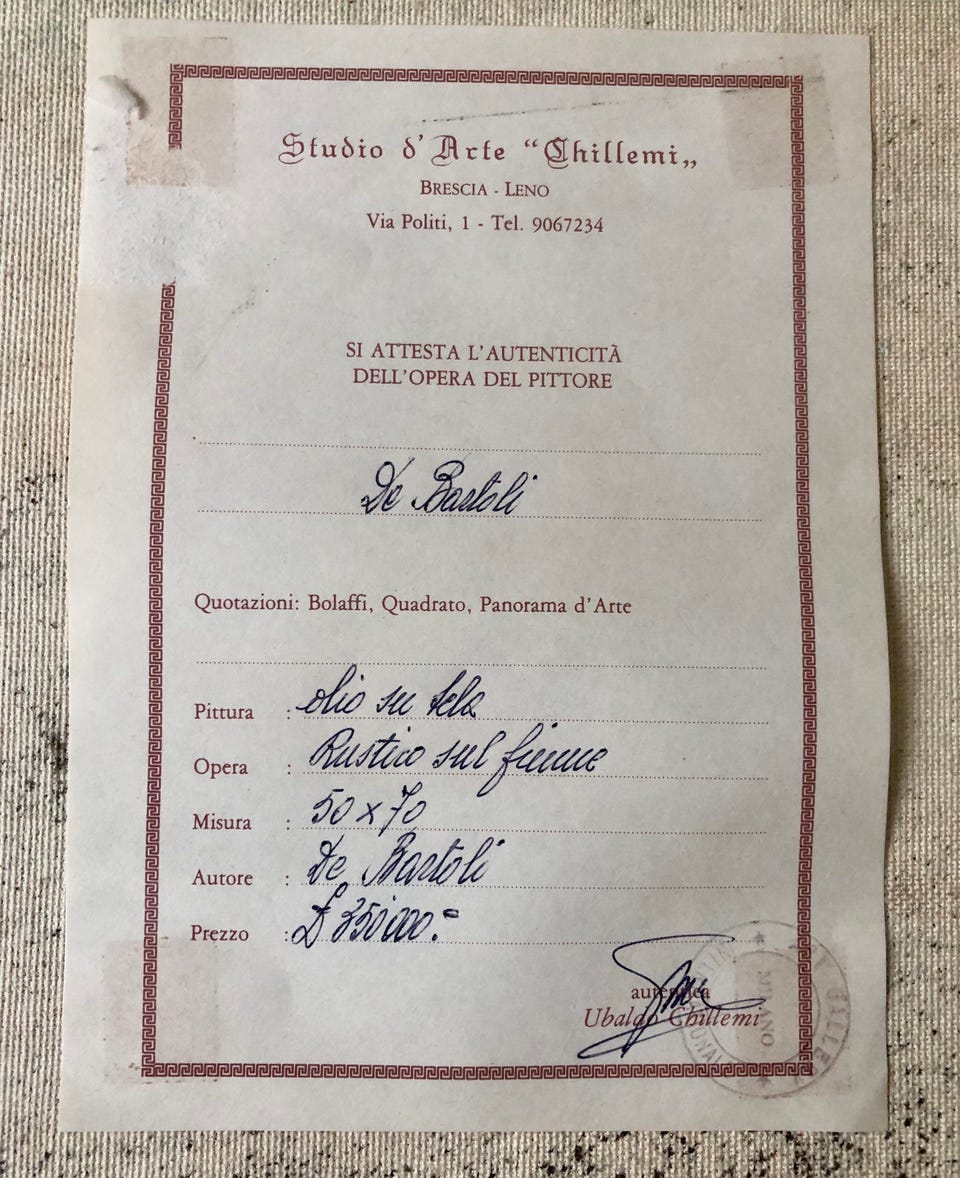 Studio d'Arte “Chillemi„
BRESCIA - LENO
Via Politi, 1 - Tel. 9067234
SI ATTESTA L'AUTENTICITÀ
DELL'OPERA DEL PITTORE
De Bartoli
Quotazioni: Bolaffi, Quadrato, Panorama d'Arte
Pittura : olio su tela
Opera : Rustico sul fiume
Misura : 50 x 70
Autore : De Bartoli
Prezzo : £ 350.000.=
autentica
Ubaldo Chillemi
MILANO